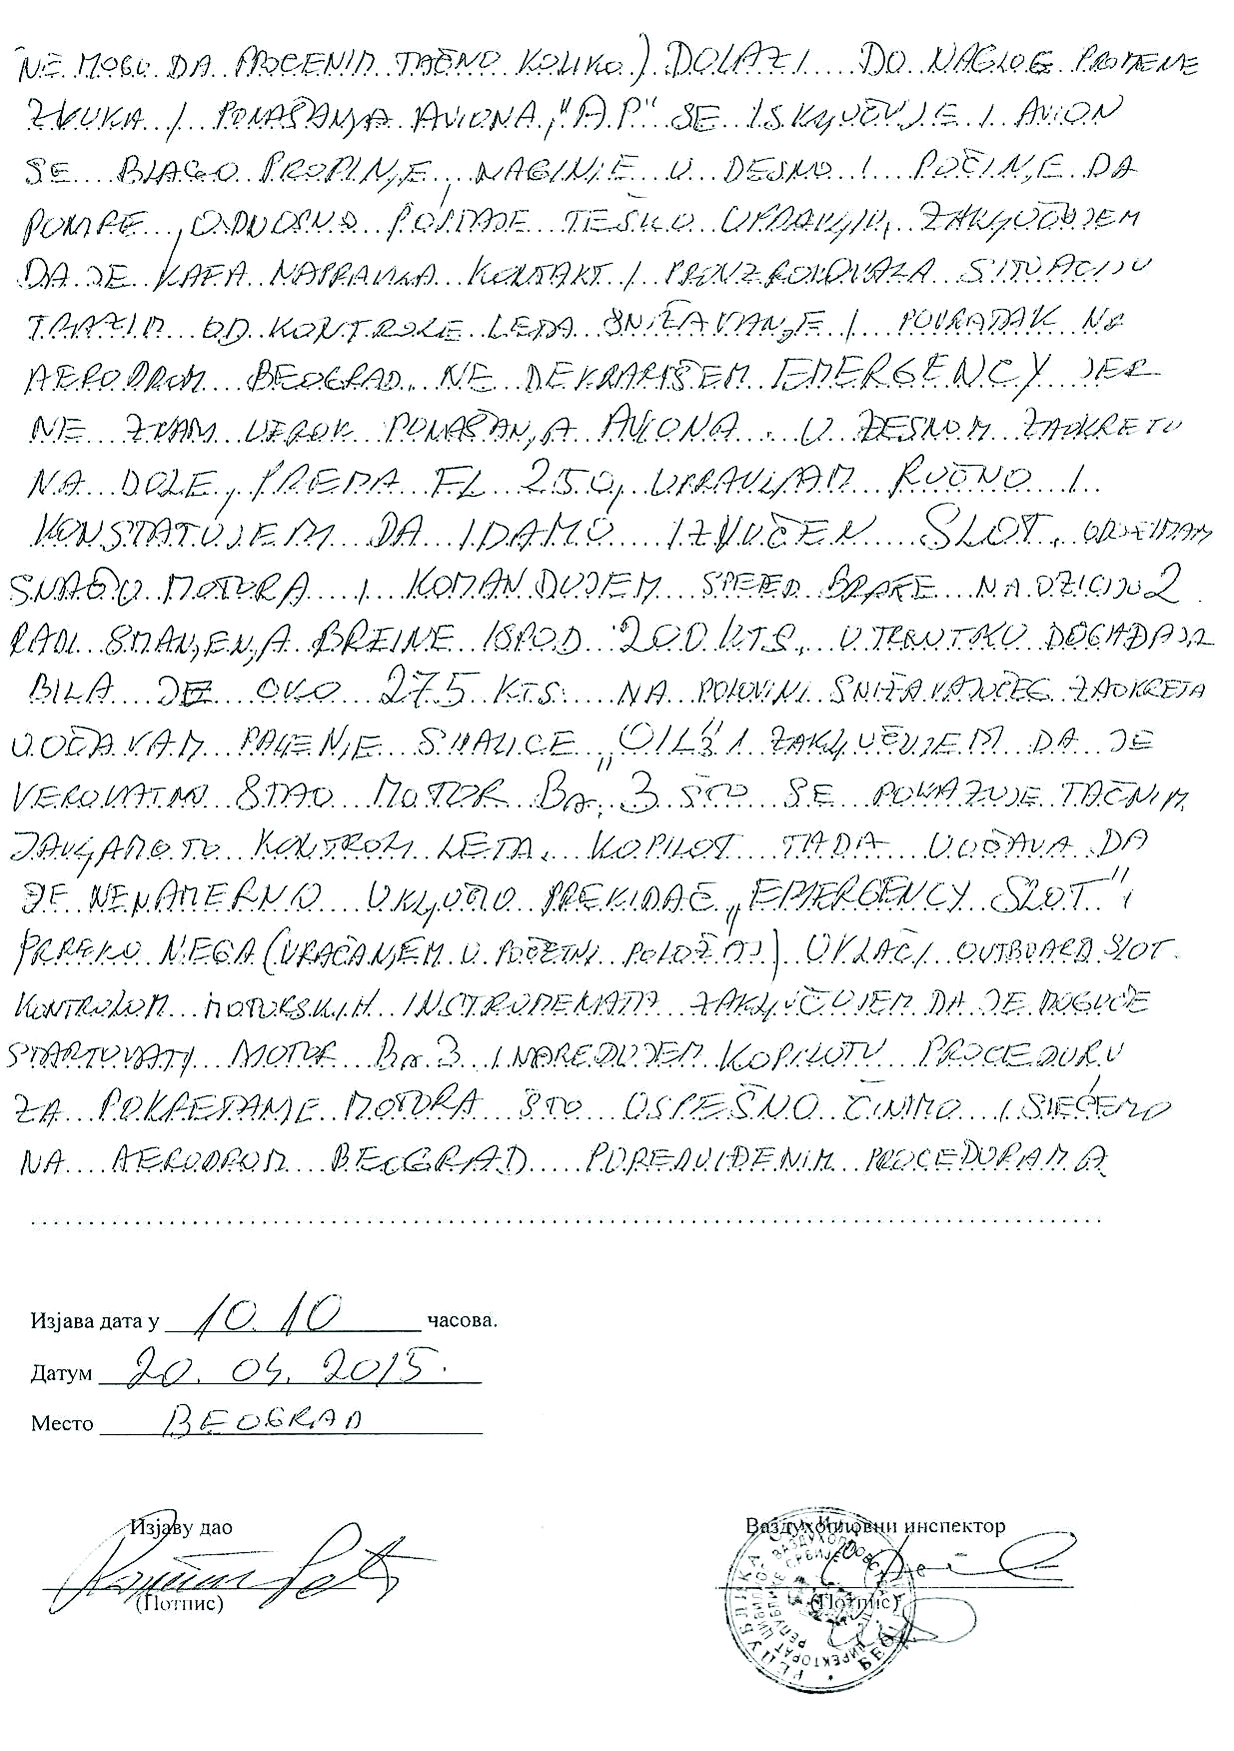 NE MOGU DA PROCENIM TAČNO KOLIKO) DOLAZI DO NAGLOG PROMENE
ZVUKA I PONAŠANJA AVIONA, "A.P" SE ISKLJUČUJE I AVION
SE BLAGO PROPINJE, NAGINJE U DESNO I POČINJE DA
PONIRE, ODNOSNO POSTAJE TEŠKO UPRAVLJIV, ZAKLJUČUJEM
DA JE KAFA NAPRAVILA KONTAKT I PROUZROKOVALA SITUACIJU
TRAŽIM OD KONTROLE LETA SNIŽAVANJE I POVRATAK NA
AERODROM BEOGRAD. NE DEKRARIŠEM EMERGENCY JER
NE ZNAM UZROK PONAŠANJA AVIONA. U DESNOM ZAOKRETU
NA DOLE, PREMA FL 250, UPRAVLJAM RUČNO I
KONSTATUJEM DA IDAMO IZVUČEN SLOT. ODUZIMAM
SNAGU MOTORA I KOMANDUJEM SPEED BRAKE NA OZICIJU 2
RADI SMANJENJA BRZINE ISPOD 200 KTS. U TRNUTKU DOGAĐAJA
BILA JE OKO 275 KTS. NA POLOVINI SNIŽAVAJUĆEG ZAOKRETA
UOČAVAM PALENJE SIJALICE „OIL 3" I ZAKLJUČUJEM DA JE
VEROVATNO STAO MOTOR BR. 3 ŠTO SE POKAZUJE TAČNIM
JAVLJAMO TO KONTROLI LETA. KOPILOT TADA UOČAVA DA
JE NENAMERNO UKLJUČIO PREKIDAČ „EMERGENCY SLOT" I
PREKO NEGA (VRAĆANJEM U POČETNI POLOŽAJ) UVLAČI OUTBOARD SLOT.
KONTROLOM MOTORSKIH INSTRUMENATA ZAKLJUČUJEM DA JE MOGUĆE
STARTOVATI MOTOR BR. 3 I NAREĐUJEM KOPILOTU PROCEDURU
ZA POKRETANJE MOTORA ŠTO USPEŠNO ČINIMO I SLEĆEMO
NA AERODROM BEOGRAD PO PREDVIĐENIM PROCEDURAMA
Изјава дата у 10.10 часова.
Датум 20. 04. 2015.
Место BEOGRAD
Изјаву дао Ваздухопловни инспектор
(Потпис) (Потпис)
РЕПУБЛИКА СРБИЈА
ДИРЕКТОРАТ ЦИВИЛНОГ ВАЗДУХОПЛОВСТВА
РЕПУБЛИКЕ СРБИЈЕ